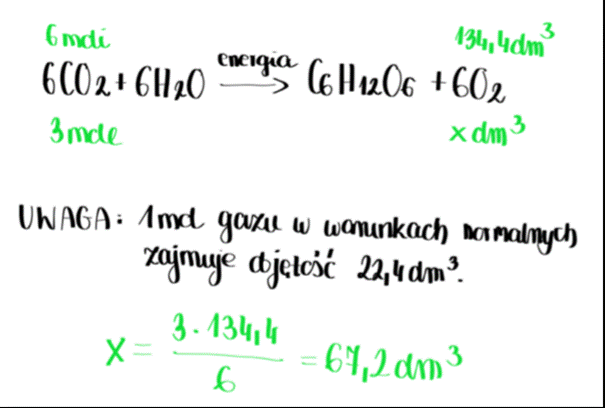 6 moli 134,4 dm³
6CO₂ + 6H₂O energia → C₆H₁₂O₆ + 6O₂
3 mole x dm³
UWAGA: 1 mol gazu w warunkach normalnych
zajmuje objętość 22,4 dm³.
x = 3 · 134,4 / 6 = 67,2 dm³